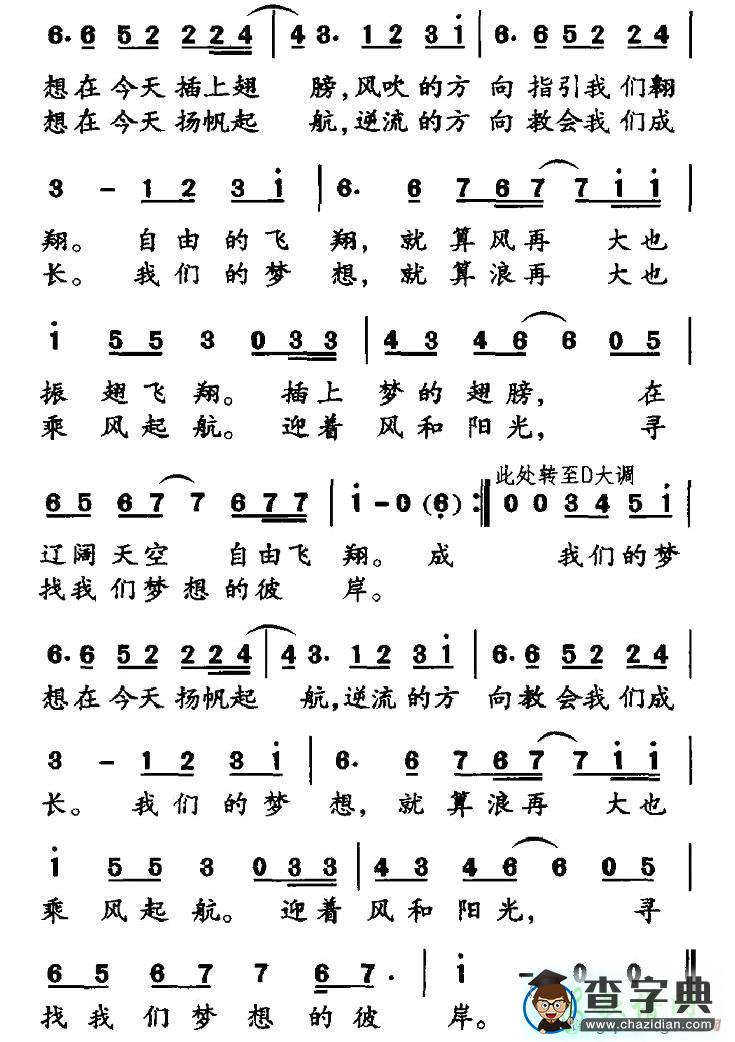 6. 6 5 2 2 2 4 | 4 3. 1 2 3 i | 6. 6 5 2 2 4 |
想在今天插上翅 膀,风吹的方 向指引我们翱
想在今天扬帆起 航,逆流的方 向教会我们成
3 - 1 2 3 i | 6. 6 7 6 7 7 i i |
翔。 自由的飞 翔,就算风再 大也
长。 我们的梦 想,就算浪再 大也
i 5 5 3 0 3 3 | 4 3 4 6 6 0 5 |
振翅飞翔。插上 梦的翅膀, 在
乘风起航。迎着 风和阳光, 寻
此处转至D大调
6 5 6 7 7 6 7 7 | i - 0 (6) :‖ 0 0 3 4 5 i |
辽阔天空 自由飞 翔。成 我们的梦
找我们梦想的彼 岸。
6. 6 5 2 2 2 4 | 4 3. 1 2 3 i | 6. 6 5 2 2 4 |
想在今天扬帆起 航,逆流的方 向教会我们成
3 - 1 2 3 i | 6. 6 7 6 7 7 i i |
长。 我们的梦 想,就算浪再 大也
i 5 5 3 0 3 3 | 4 3 4 6 6 0 5 |
乘风起航。迎着 风和阳光, 寻
6 5 6 7 7 6 7. | i - 0 0. ‖
找我们梦想的彼 岸。
查字典
www.chazidian.com